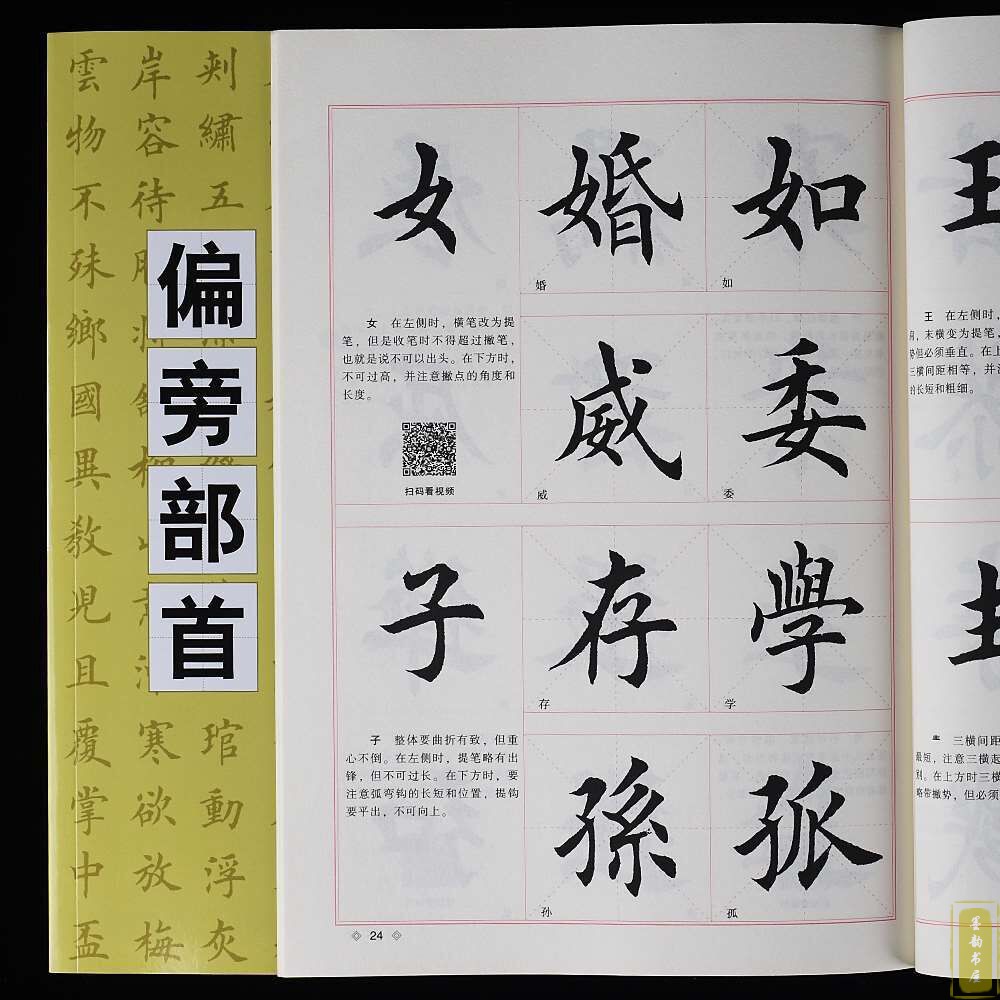 刺繡五
琯動浮灰
岸容待
寒欲放梅
雲物不殊鄉國異敎児且覆掌中盃
偏旁部首
女
婚
婚
如
如
女 在左侧时，横笔改为提
笔，但是收笔时不得超过撇笔，
也就是说不可以出头。在下方时，
不可过高，并注意撇点的角度和
长度。
扫码看视频
威
威
委
委
子
存
存
学
學
子 整体要曲折有致，但重
心不倒。在左侧时，提笔略有出
锋，但不可过长。在下方时，要
注意弧弯钩的长短和位置，提钩
要平出，不可向上。
孫
孙
孤
孤
24
王
王 在左侧时，
，末横变为提笔，
但必须垂直。在上
三横间距相等，并注
的长短和粗细。
三横间距
最短，注意三横起
。在上方时三横
略带撇势，但必须
墨韵书屋